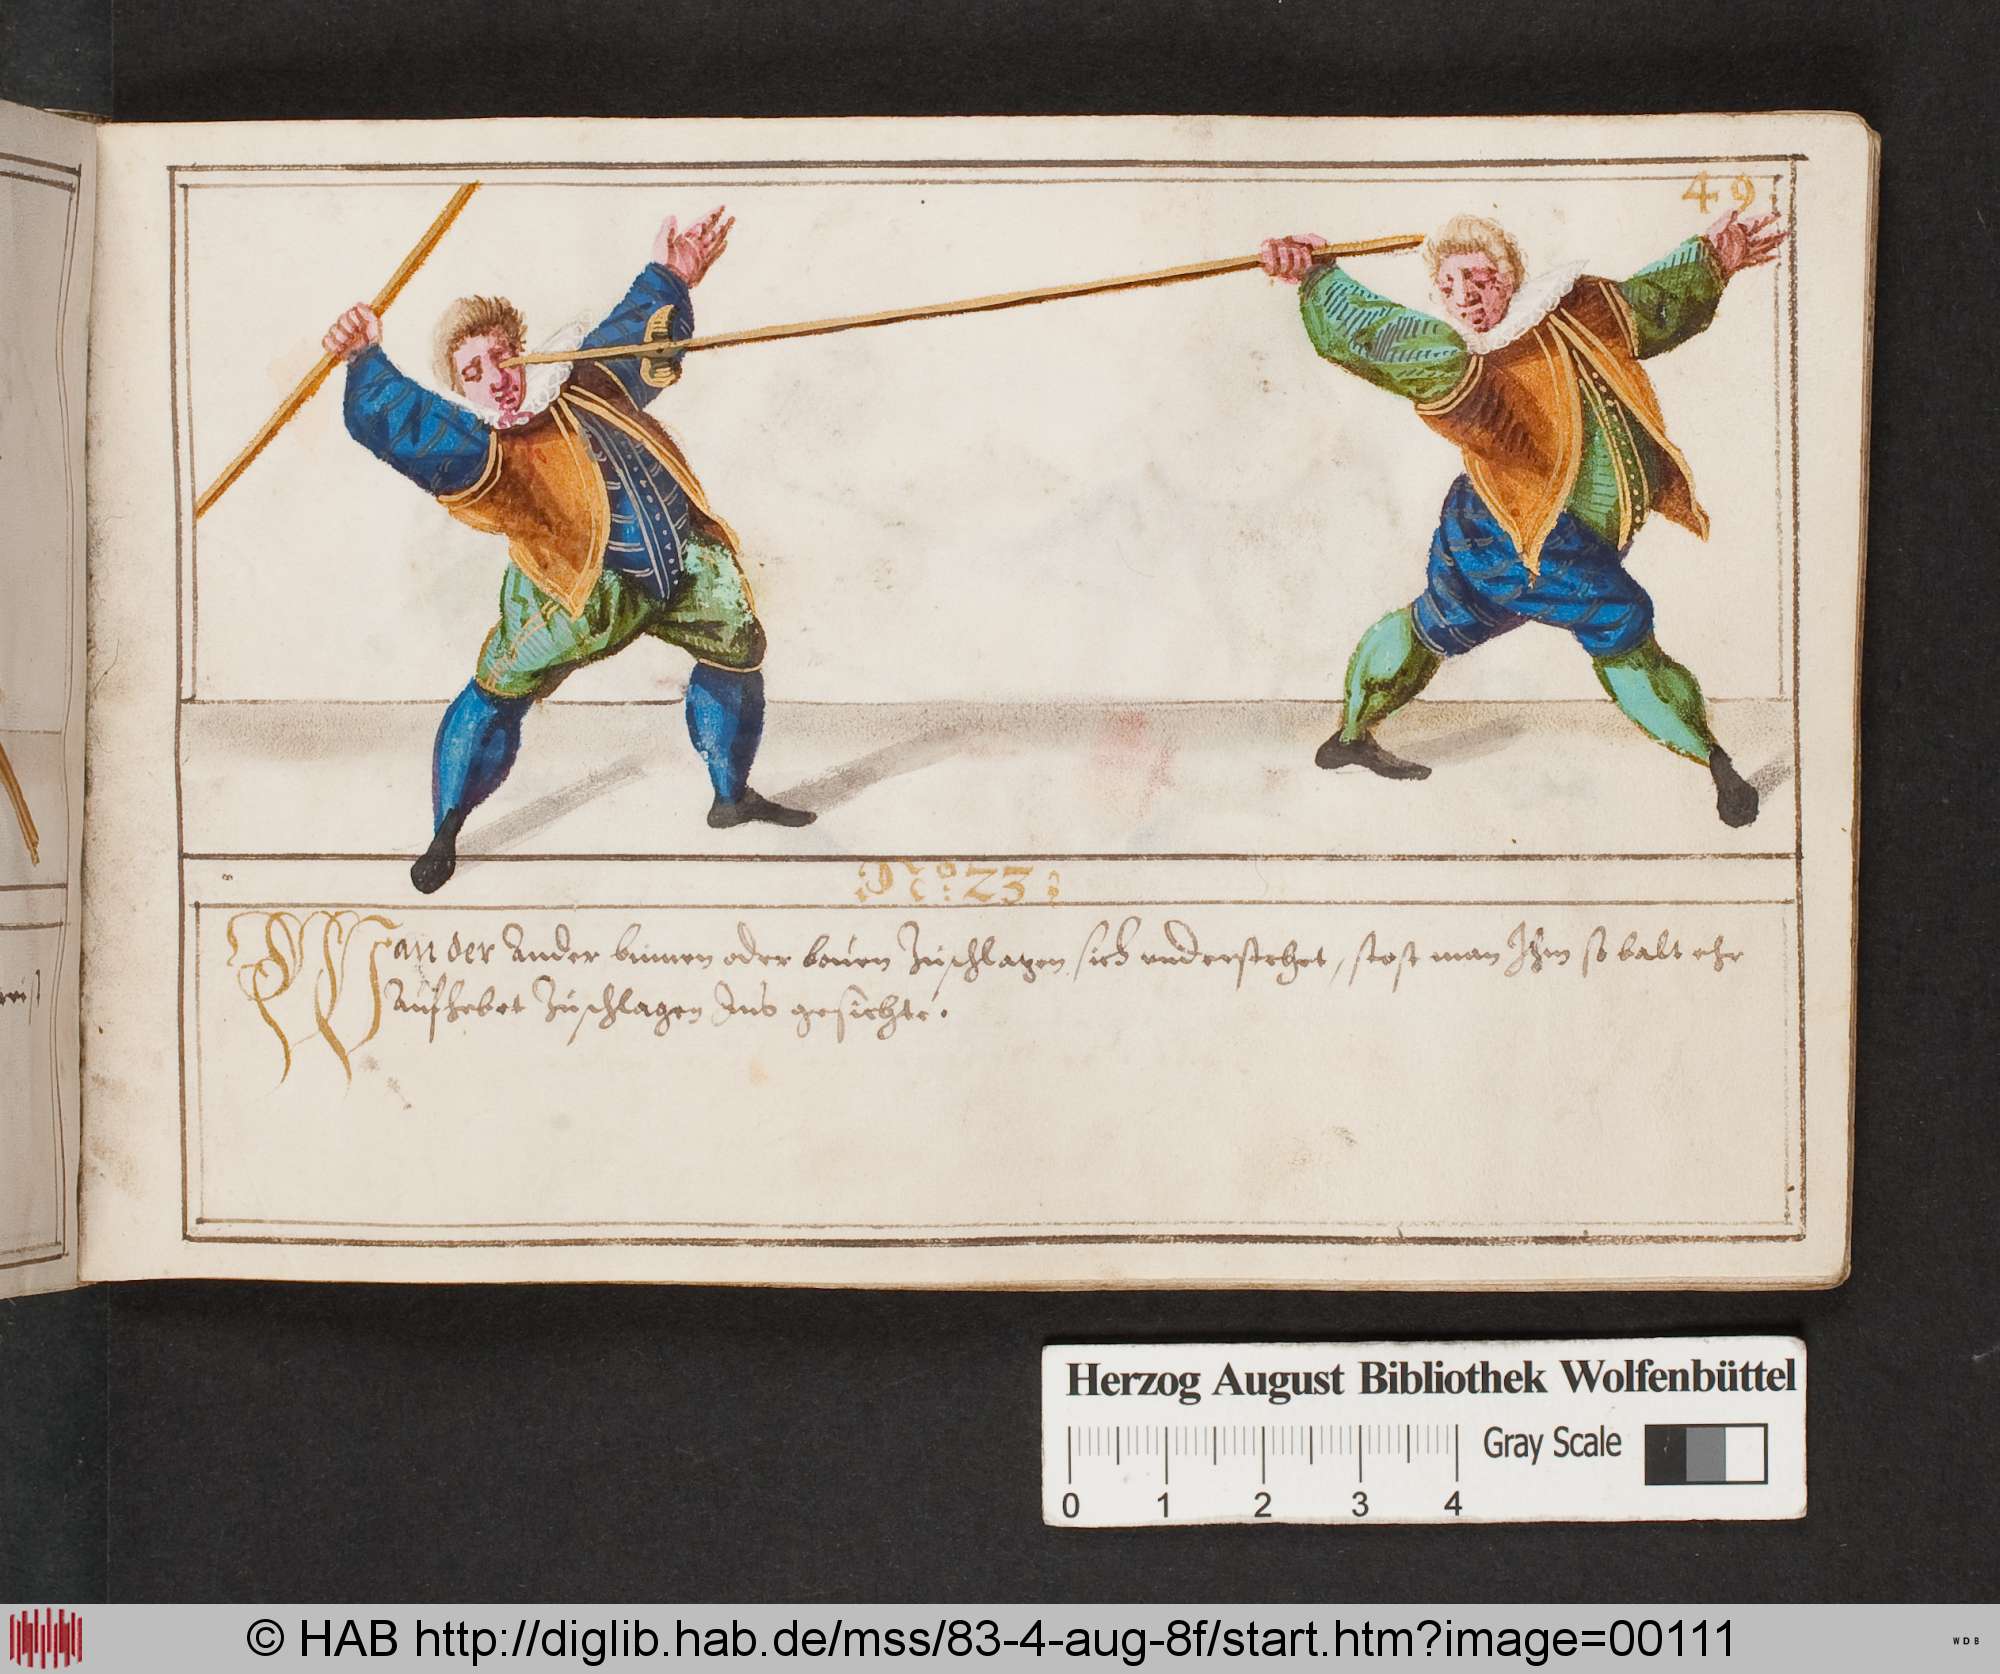 49
No: 23:
Wan der ander binnen oder bouen Zuschlagen sich understehet, stost man Ihm so balt ehr
aufhebet Zuschlagen Ins gesichte.
Herzog August Bibliothek Wolfenbüttel
Gray Scale
0 1 2 3 4
© HAB http://diglib.hab.de/mss/83-4-aug-8f/start.htm?image=00111
WDB